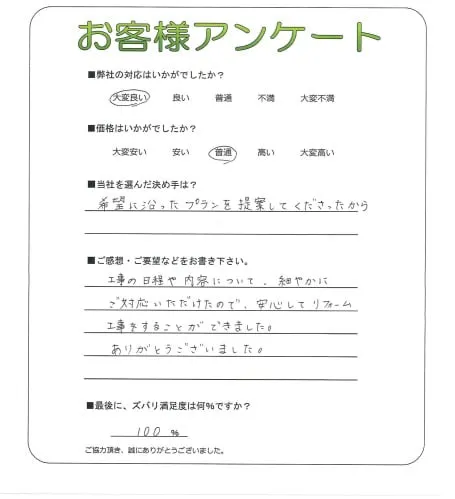 お客様アンケート
■弊社の対応はいかがでしたか？
大変良い 良い 普通 不満 大変不満
■価格はいかがでしたか？
大変安い 安い 普通 高い 大変高い
■当社を選んだ決め手は？
希望に沿ったプランを提案してくださったから
■ご感想・ご要望などをお書き下さい。
工事の日程や内容について、細やかに
ご対応いただけたので、安心してリフォーム
工事をすることができました。
ありがとうございました。
■最後に、ズバリ満足度は何％ですか？
100 %
ご協力頂き、誠にありがとうございました。